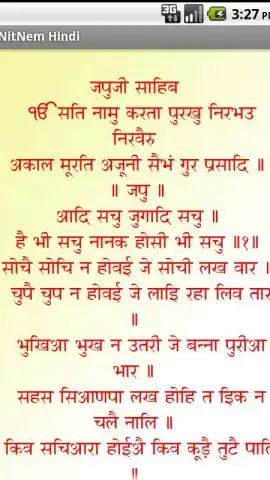 3G 3:27 PM
NitNem Hindi
जपुजी साहिब
ੴ सति नामु करता पुरखु निरभउ
निरवैरु
अकाल मूरति अजूनी सैभं गुर प्रसादि ॥
॥ जपु ॥
आदि सचु जुगादि सचु ॥
है भी सचु नानक होसी भी सचु ॥१॥
सोचै सोचि न होवई जे सोची लख वार ॥
चुपै चुप न होवई जे लाइ रहा लिव तार
॥
भुखिआ भुख न उतरी जे बन्ना पुरीआ
भार ॥
सहस सिआणपा लख होहि त इिक न
चलै नालि ॥
किव सचिआरा होईअै किव कूड़ै तुटै पालि
॥